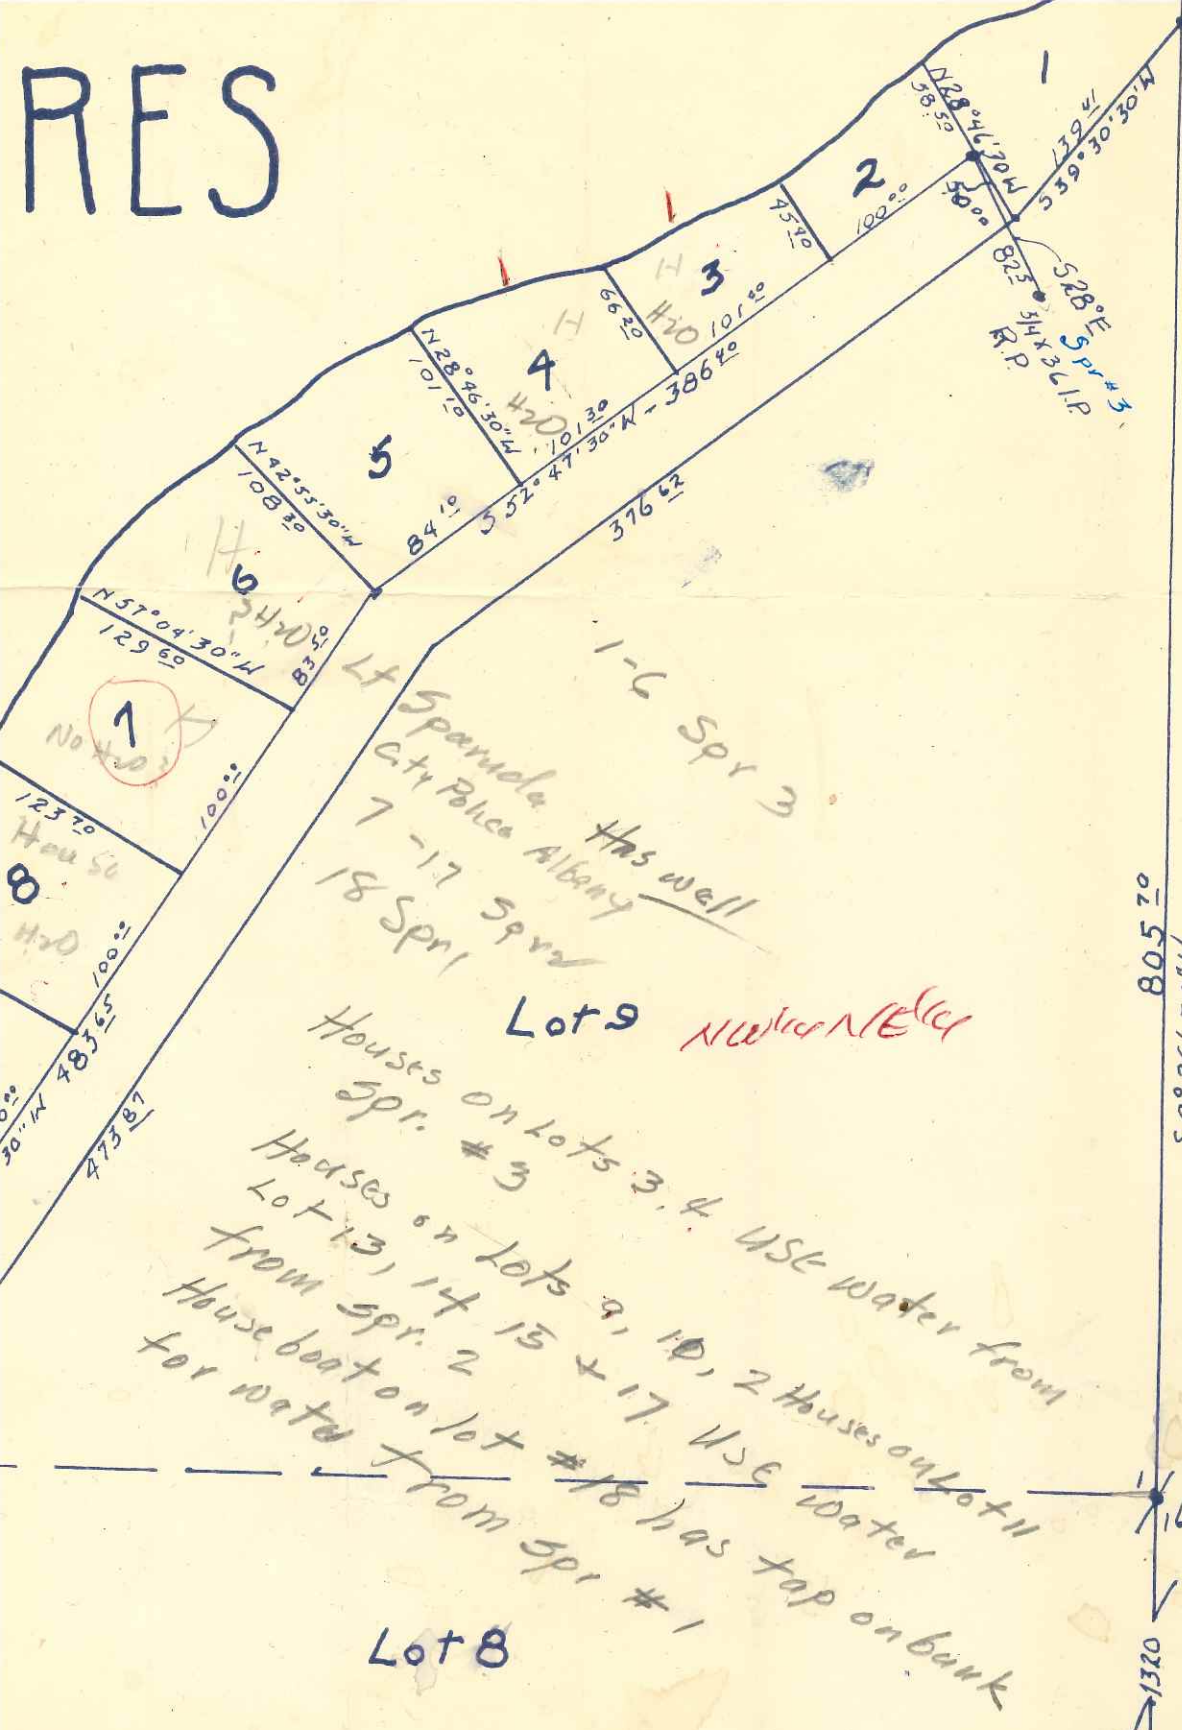 RES
1
N28°46'30"W
58.50
139.41
S39°30'30"W
2
100.00
50.00
45.90
S28°E
82.5°
3/4 x 36 I.P.
R.P.
Spr #3
H
3
H2O
66.20
101.00
H
4
H2O
101.30
N28°46'30"W
101.10
S52°47'30"W - 386.40
376.62
5
84.10
N42°55'30"W
108.30
H
6
? H2O
83.50
N57°04'30"W
129.60
7
H
No H2O?
100.00
123.70
House
8
H2O
100.00
30"W 483.65
473.87
1-6 Spr 3
Lt
City Police Albany
Has well
7-17 Spr 2
18 Spr 1
Lot 9
NW 1/4 NE 1/4
805.70
Houses on Lots 3, 4 use water from
Spr. #3
Houses on Lots 9, 10, 2 Houses on Lot 11
Lot 13, 14 15 + 17 use water
from spr. 2
House boat on lot #18 has tap on bank
for water from spr #1
Lot 8
1320